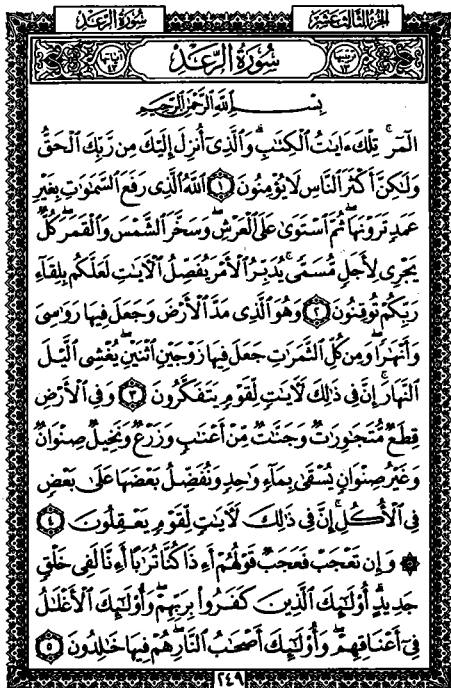 سُورَةُ الرَّعْدِ
الجُزْءُ الثَّالِثَ عَشَرَ
سُورَةُ الرَّعْدِ
بِسْمِ اللَّهِ الرَّحْمَٰنِ الرَّحِيمِ
الٓمٓرۚ تِلْكَ ءَايَٰتُ ٱلْكِتَٰبِۗ وَٱلَّذِىٓ أُنزِلَ إِلَيْكَ مِن رَّبِّكَ ٱلْحَقُّ
وَلَٰكِنَّ أَكْثَرَ ٱلنَّاسِ لَا يُؤْمِنُونَ ١ ٱللَّهُ ٱلَّذِى رَفَعَ ٱلسَّمَٰوَٰتِ بِغَيْرِ
عَمَدٍ تَرَوْنَهَاۖ ثُمَّ ٱسْتَوَىٰ عَلَى ٱلْعَرْشِۖ وَسَخَّرَ ٱلشَّمْسَ وَٱلْقَمَرَۖ كُلٌّ
يَجْرِى لِأَجَلٍ مُّسَمًّىۚ يُدَبِّرُ ٱلْأَمْرَ يُفَصِّلُ ٱلْءَايَٰتِ لَعَلَّكُم بِلِقَآءِ
رَبِّكُمْ تُوقِنُونَ ٢ وَهُوَ ٱلَّذِى مَدَّ ٱلْأَرْضَ وَجَعَلَ فِيهَا رَوَٰسِىَ
وَأَنْهَٰرًاۖ وَمِن كُلِّ ٱلثَّمَرَٰتِ جَعَلَ فِيهَا زَوْجَيْنِ ٱثْنَيْنِۖ يُغْشِى ٱلَّيْلَ
ٱلنَّهَارَۚ إِنَّ فِى ذَٰلِكَ لَءَايَٰتٍ لِّقَوْمٍ يَتَفَكَّرُونَ ٣ وَفِى ٱلْأَرْضِ
قِطَعٌ مُّتَجَٰوِرَٰتٌ وَجَنَّٰتٌ مِّنْ أَعْنَٰبٍ وَزَرْعٌ وَنَخِيلٌ صِنْوَانٌ
وَغَيْرُ صِنْوَانٍ يُسْقَىٰ بِمَآءٍ وَٰحِدٍ وَنُفَضِّلُ بَعْضَهَا عَلَىٰ بَعْضٍ
فِى ٱلْأُكُلِۚ إِنَّ فِى ذَٰلِكَ لَءَايَٰتٍ لِّقَوْمٍ يَعْقِلُونَ ٤
۞ وَإِن تَعْجَبْ فَعَجَبٌ قَوْلُهُمْ أَءِذَا كُنَّا تُرَٰبًا أَءِنَّا لَفِى خَلْقٍ
جَدِيدٍۗ أُو۟لَٰٓئِكَ ٱلَّذِينَ كَفَرُوا۟ بِرَبِّهِمْۖ وَأُو۟لَٰٓئِكَ ٱلْأَغْلَٰلُ
فِىٓ أَعْنَاقِهِمْۖ وَأُو۟لَٰٓئِكَ أَصْحَٰبُ ٱلنَّارِۖ هُمْ فِيهَا خَٰلِدُونَ ٥
٢٤٩